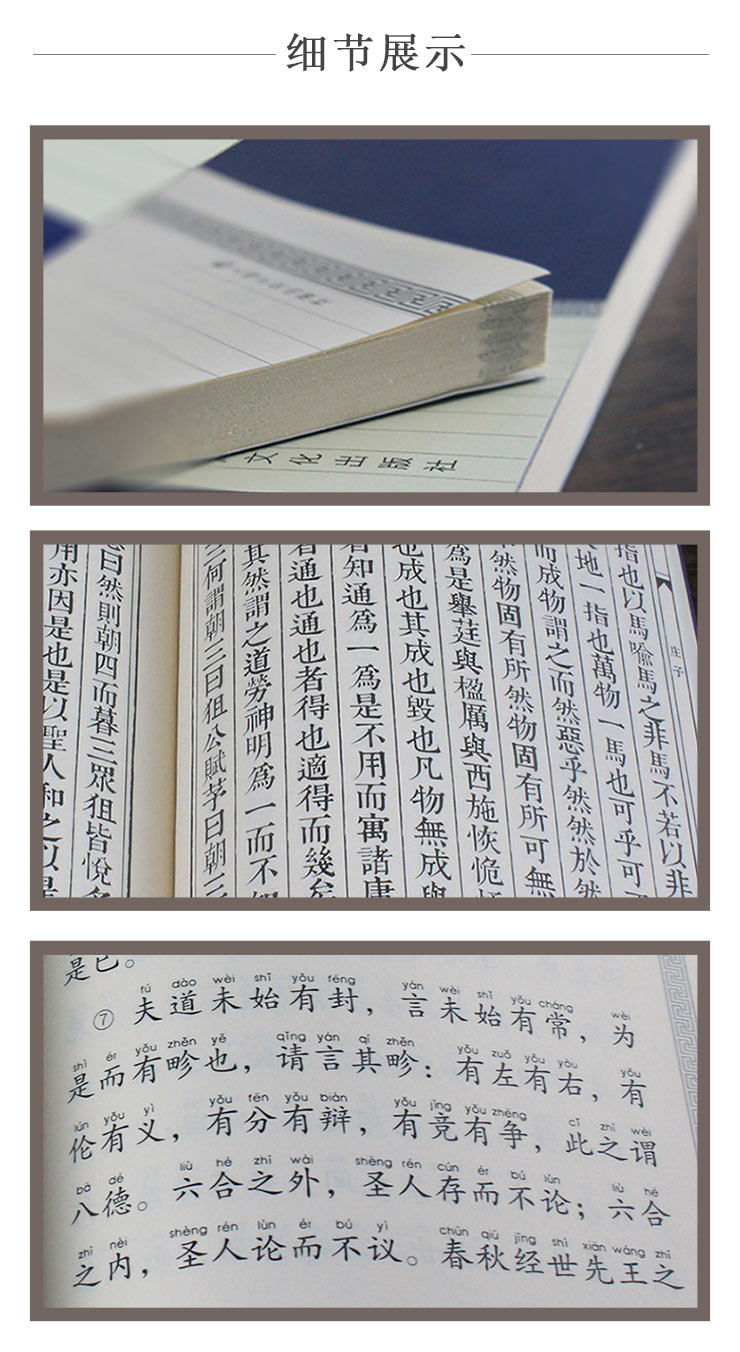 细节展示
文化出版社
庄子
指也以馬喻馬之非馬不若以非
地一指也萬物一馬也可乎可
而成物謂之而然惡乎然然於然
然物固有所然物固有所可無
爲是舉莛與楹厲與西施恢恑
也成也其成也毀也凡物無成與
知通爲一爲是不用而寓諸庸
者通也通也者得也適得而幾矣
其然謂之道勞神明爲一而不知
三何謂朝三曰狙公賦芧曰朝三
曰然則朝四而暮三眾狙皆悅名
用亦因是也是以聖人和之以是
是已。
fú dào wèi shǐ yǒu fēng yán wèi shǐ yǒu cháng wèi
⑦ 夫道未始有封，言未始有常，为
shì ér yǒu zhěn yě qǐng yán qí zhěn yǒu zuǒ yǒu yòu yǒu
是而有畛也，请言其畛：有左有右，有
lún yǒu yì yǒu fēn yǒu biàn yǒu jìng yǒu zhēng cǐ zhī wèi
伦有义，有分有辩，有竞有争，此之谓
bā dé liù hé zhī wài shèng rén cún ér bú lùn liù hé
八德。六合之外，圣人存而不论；六合
zhī nèi shèng rén lùn ér bú yì chūn qiū jīng shì xiān wáng zhī
之内，圣人论而不议。春秋经世先王之